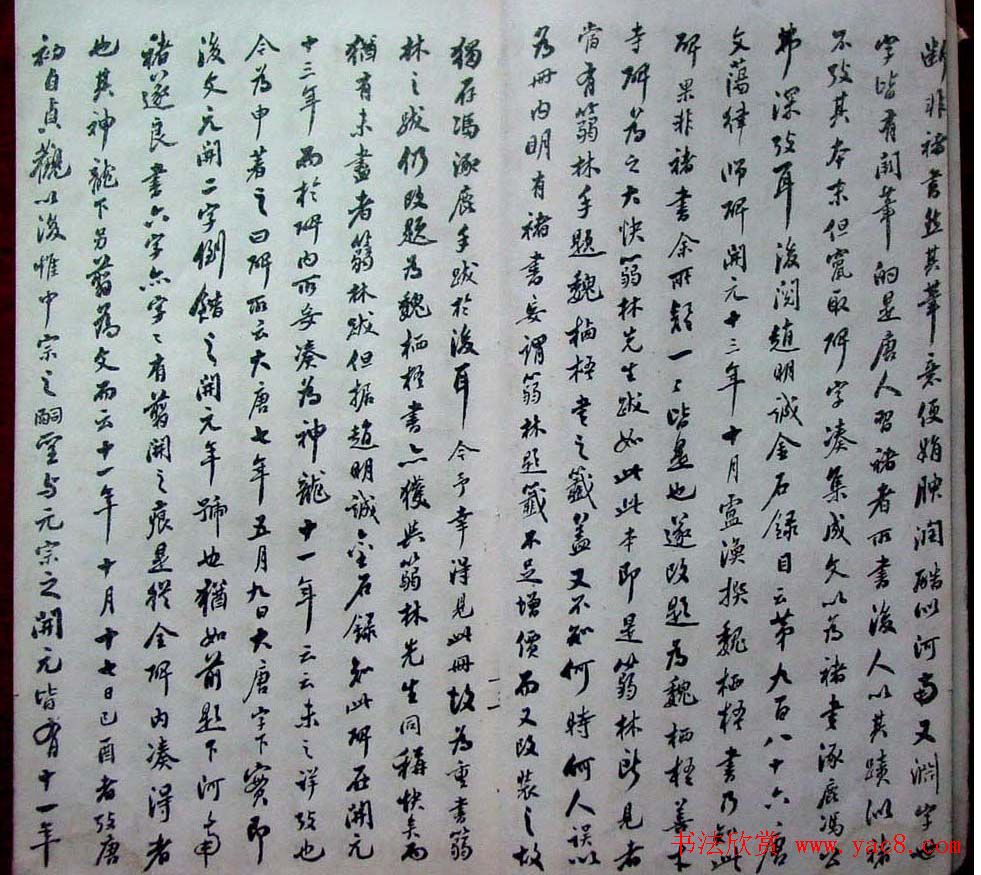 断非褚书然其笔意便娟腴润酷似河南又渊字世
字皆有闕筆的是唐人習褚者所書後人以其蹟似褚
不攷其本末但竄取碑字湊集成文以為褚書涿鹿馮公
弗深攷耳後閱趙明誠金石錄目云第九百八十六唐
文蕩律師碑開元十三年十月盧渙撰魏栖梧書乃知此
碑果非褚書余所疑一〻皆是也遂改題為魏栖梧善才
寺碑為之大快篛林先生跋如此此本即是篛林所見者
當有篛林手題魏栖梧書之籤蓋又不知何時何人誤以
為冊内明有褚書妄謂篛林題籤不足增價而又改裝之故
獨存馮涿鹿手跋於後耳今予幸得見此冊故為重書篛
林之跋仍改題為魏栖梧書亦獲與篛林先生同稱快矣而
猶有未盡者篛林跋但据趙明誠金石錄知此碑在開元
十三年而於碑内所妄湊為神龍十一年云云未之詳攷也
今為申著之曰碑所云大唐七年五月九日大唐字下實即
後文元開二字倒錯之開元年號也猶如前題下河南
褚遂良書六字亦字〻有剪開之痕是從全碑内湊得者
也其神龍下另剪為文而云十一年十月十七日己酉者攷唐
初自貞觀以後惟中宗之嗣聖与元宗之開元皆有十一年
书法欣赏
www.yac8.com